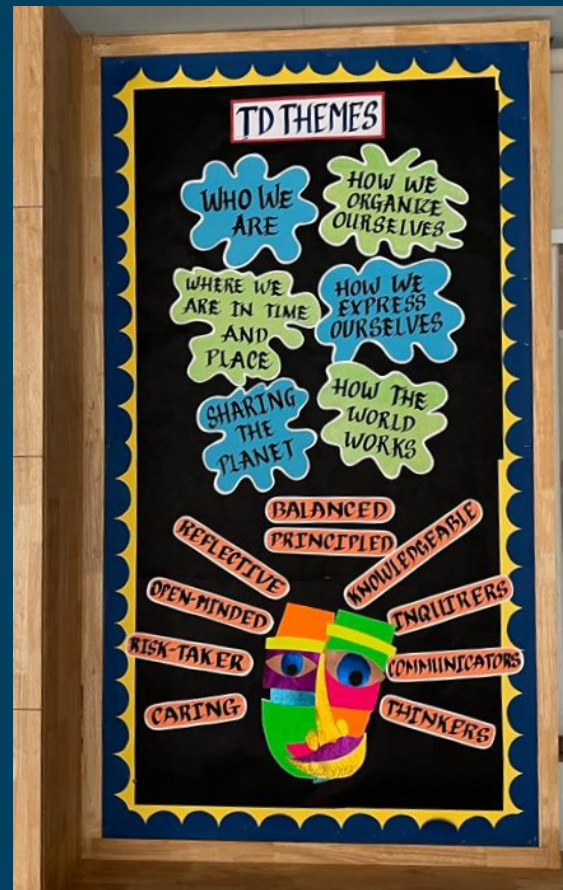 TD THEMES
WHO WE
ARE
HOW WE
ORGANIZE
OURSELVES
WHERE WE
ARE IN TIME
AND
PLACE
HOW WE
EXPRESS
OURSELVES
SHARING
THE
PLANET
HOW THE
WORLD
WORKS
BALANCED
PRINCIPLED
REFLECTIVE
KNOWLEDGEABLE
OPEN-MINDED
INQUIRERS
RISK-TAKER
COMMUNICATORS
CARING
THINKERS